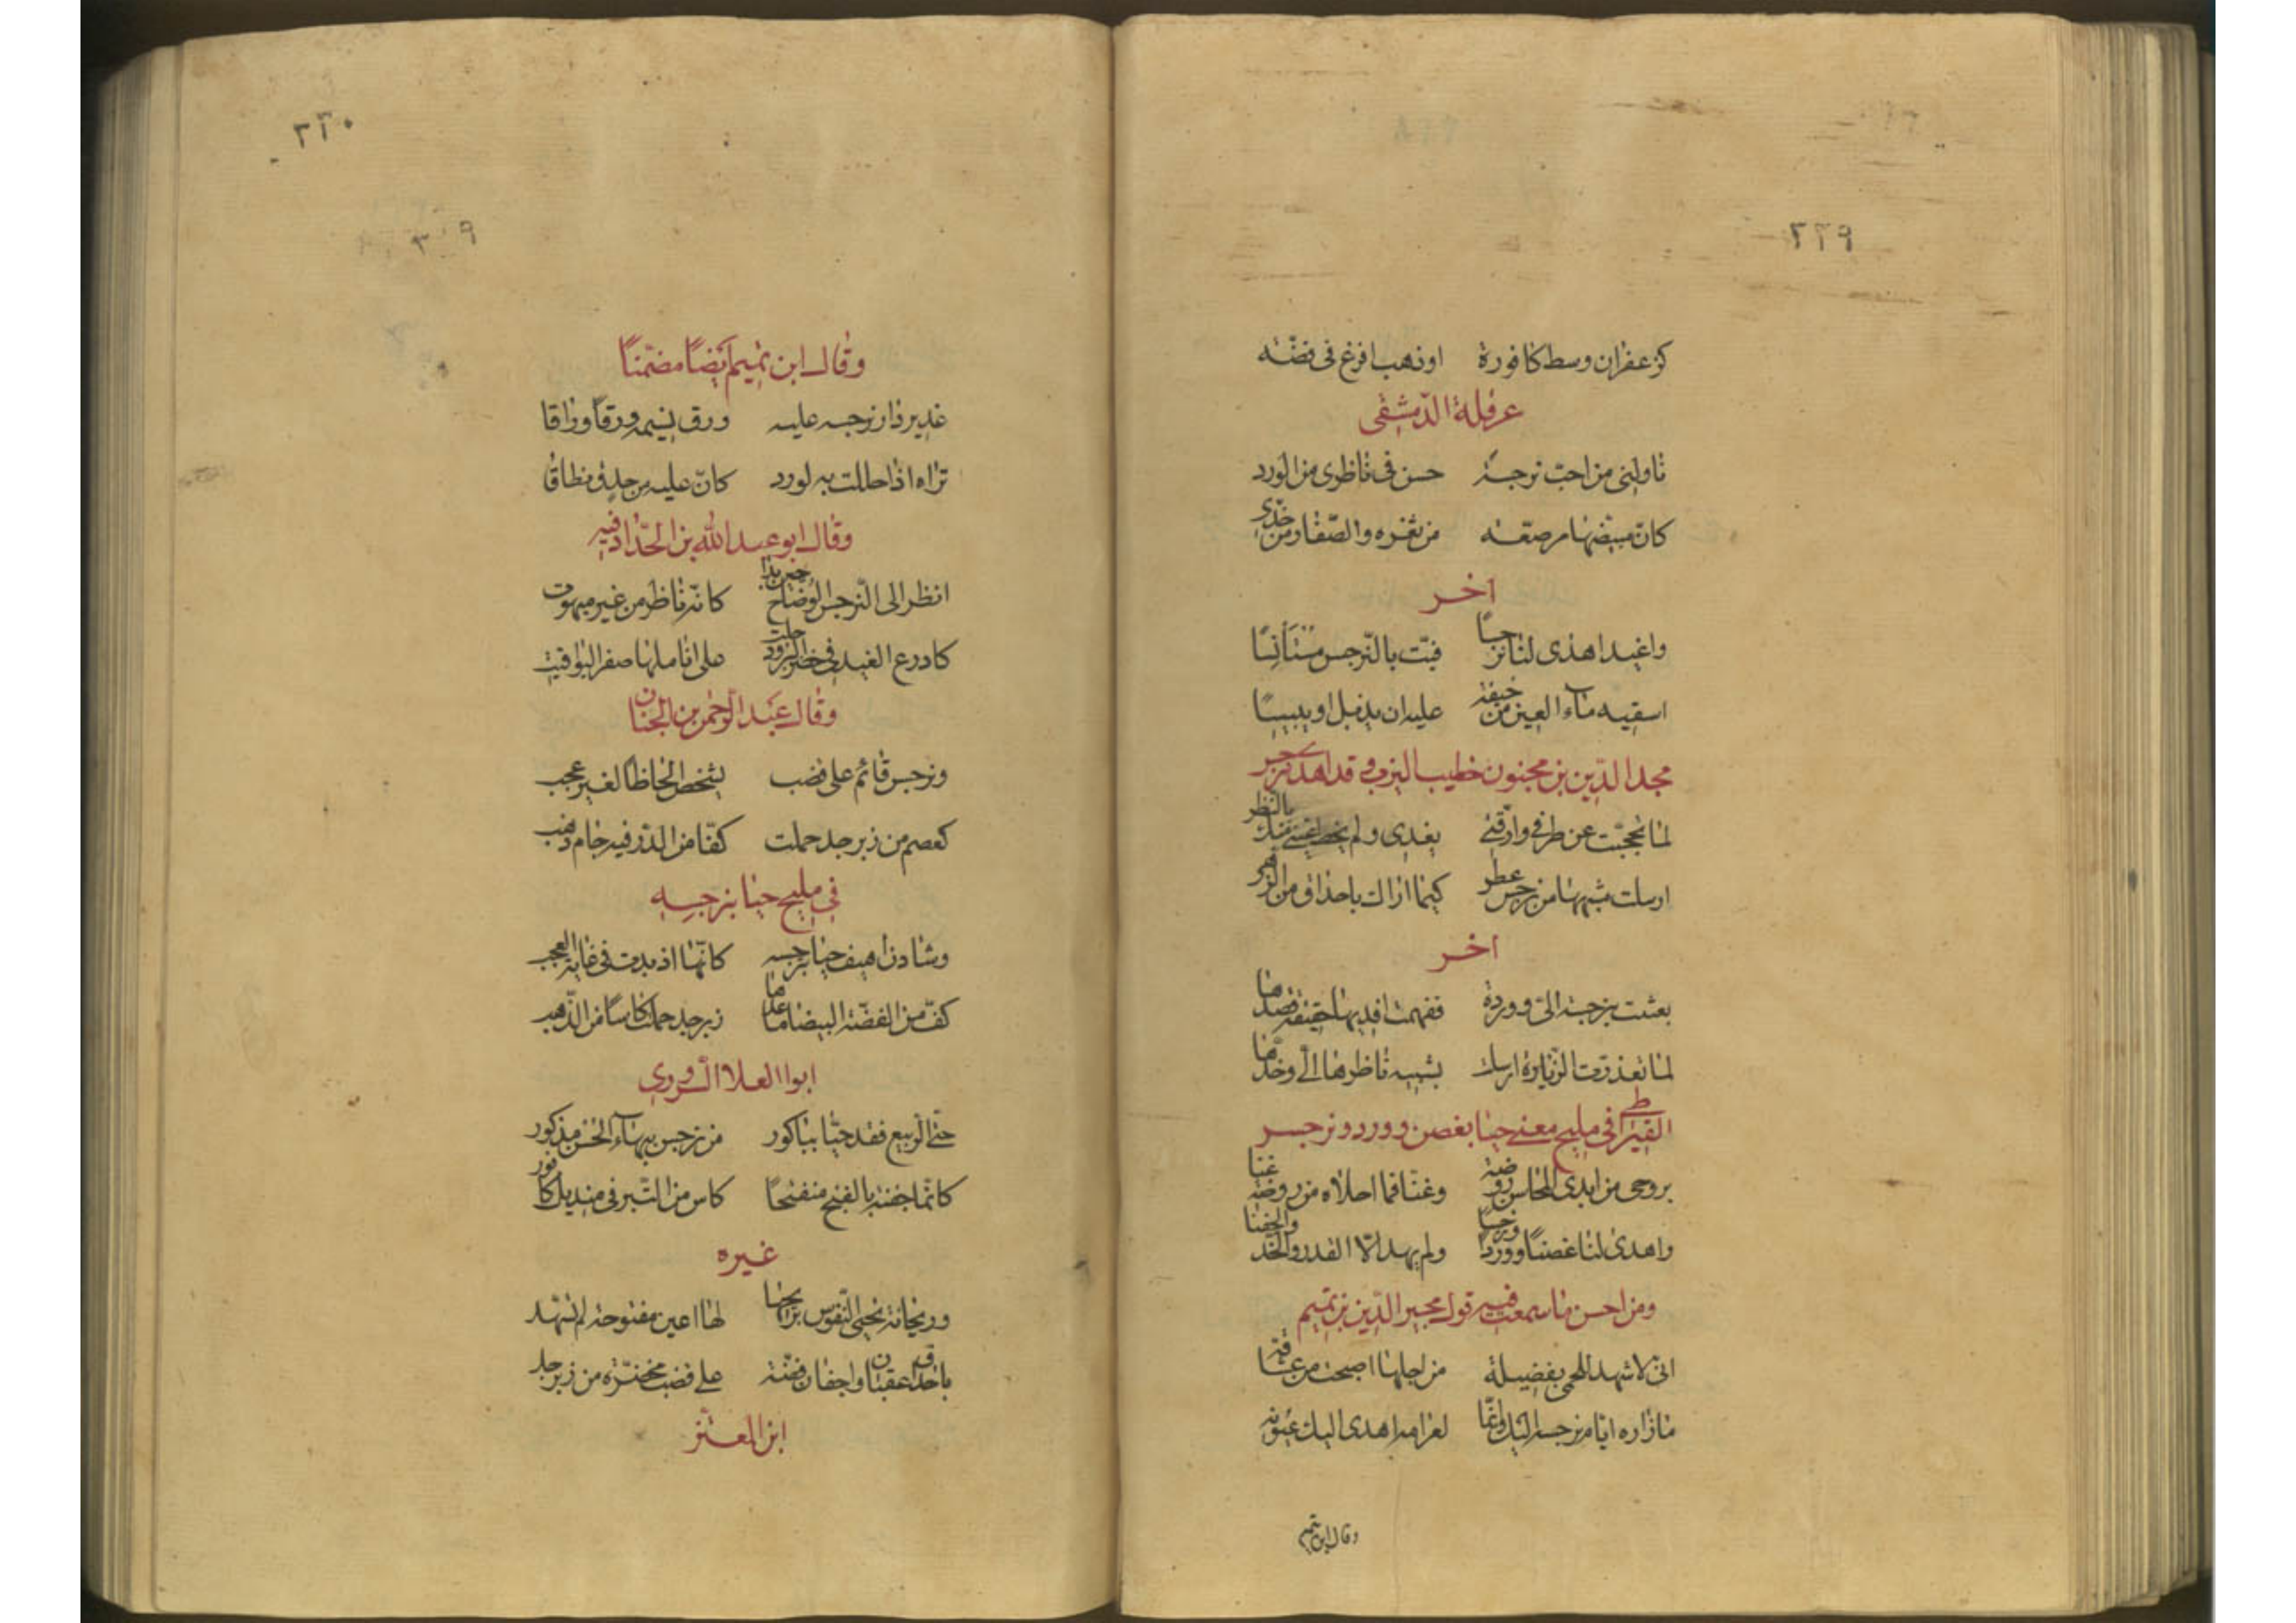 ٢٢٩
كزعفران وسط كافورة اوذهب افرغ فى فضّه
عرقلة الدّمشقى
ناولنى من احبّ نرجسة حسن فى ناظرى من الورد
كانّ مبيضّها مرصّعه من ثغره والصّفار من خدّى
اخر
واغيد اهدى لنا نرجسًا فبتّ بالنّرجس مستأنسًا
اسقيه ماء العين من خيفة عليه ان يذبل او ييبسًا
مجد الدّين بن مجنون خطيب النيرب وقد اهدى نرجس
لما تحجّبت عن طرفى وارّقنى بعدى ولم عينى منك بالنظر
ارسلت مشبهها من نرجس عطر كيما اراك باحداق من الزّهر
اخر
بعثت بنرجسة الىّ ووردة ففهمت افديها حقيقة قصدها
لما تعذرت الزيارة ارسلت بشبيه ناظرها الىّ وخدّها
القيراطى فى مليح مغنى حيا بغصن وورد ونرجس
بروحى من ابدى المحاسن روضة وغنّا فما احلاه من روضة غنا
واهدى لنا غصنًا ووردًا ونرجسًا ولم يهد الّا القد والخد والجفنا
ومن احسن ما سمعت فيه قول مجير الدّين بن تميم
انى لاشهد للحمى بفضيلة من اجلها اصبحت من عشاقه
ما زاره ايام نرجسه اليك وانمّا لغرامه اهدى اليك عيونه
وقال ابن تميم
٢٢٠
٣٠٩
وقال ابن تميم ايضًا مضمّنًا
غدير دار نرجسه عليه ورق نسيمه ورقًا وراقا
تراه اذا حللت به لورد كانّ عليه من حدق نطاقا
وقال ابو عبد الله بن الحدّاد فيه
انظر الى النّرجس الوضاح حين بدا كانّه ناظر من غير مبهوت
كادرع الغيد فى خضر البرود حلت على اناملها صفر اليواقيت
وقال عبد الرحمن بن الجنان
ونرجس قائم على قضب لشخص الحاظا لغير عجب
كمعصم من زبرجد حملت كفّا من الدّر فيه جام ذهب
فى مليح حيا بنرجسه
وشادن اهيف حيا بنرجسه كانّها اذ بدت فى غاية العجب
كفّ من الفضّة البيضا ساعدها زبرجد حملت كاسًا من الذّهب
ابو العلا السّروى
حىّ الربيع فقد حيّا بباكور من نرجس ببهاء الحسن مذكور
كانّما جفنه بالغنج منفتحًا كاس من التّبر فى منديل كافور
غيره
وريحانة تحيى النّفوس بريحها لها اعين مفتوحة لم تسهّد
باحداق عقيان واجفان فضّة على قضب مخضرّة من زبرجد
ابن المعتز